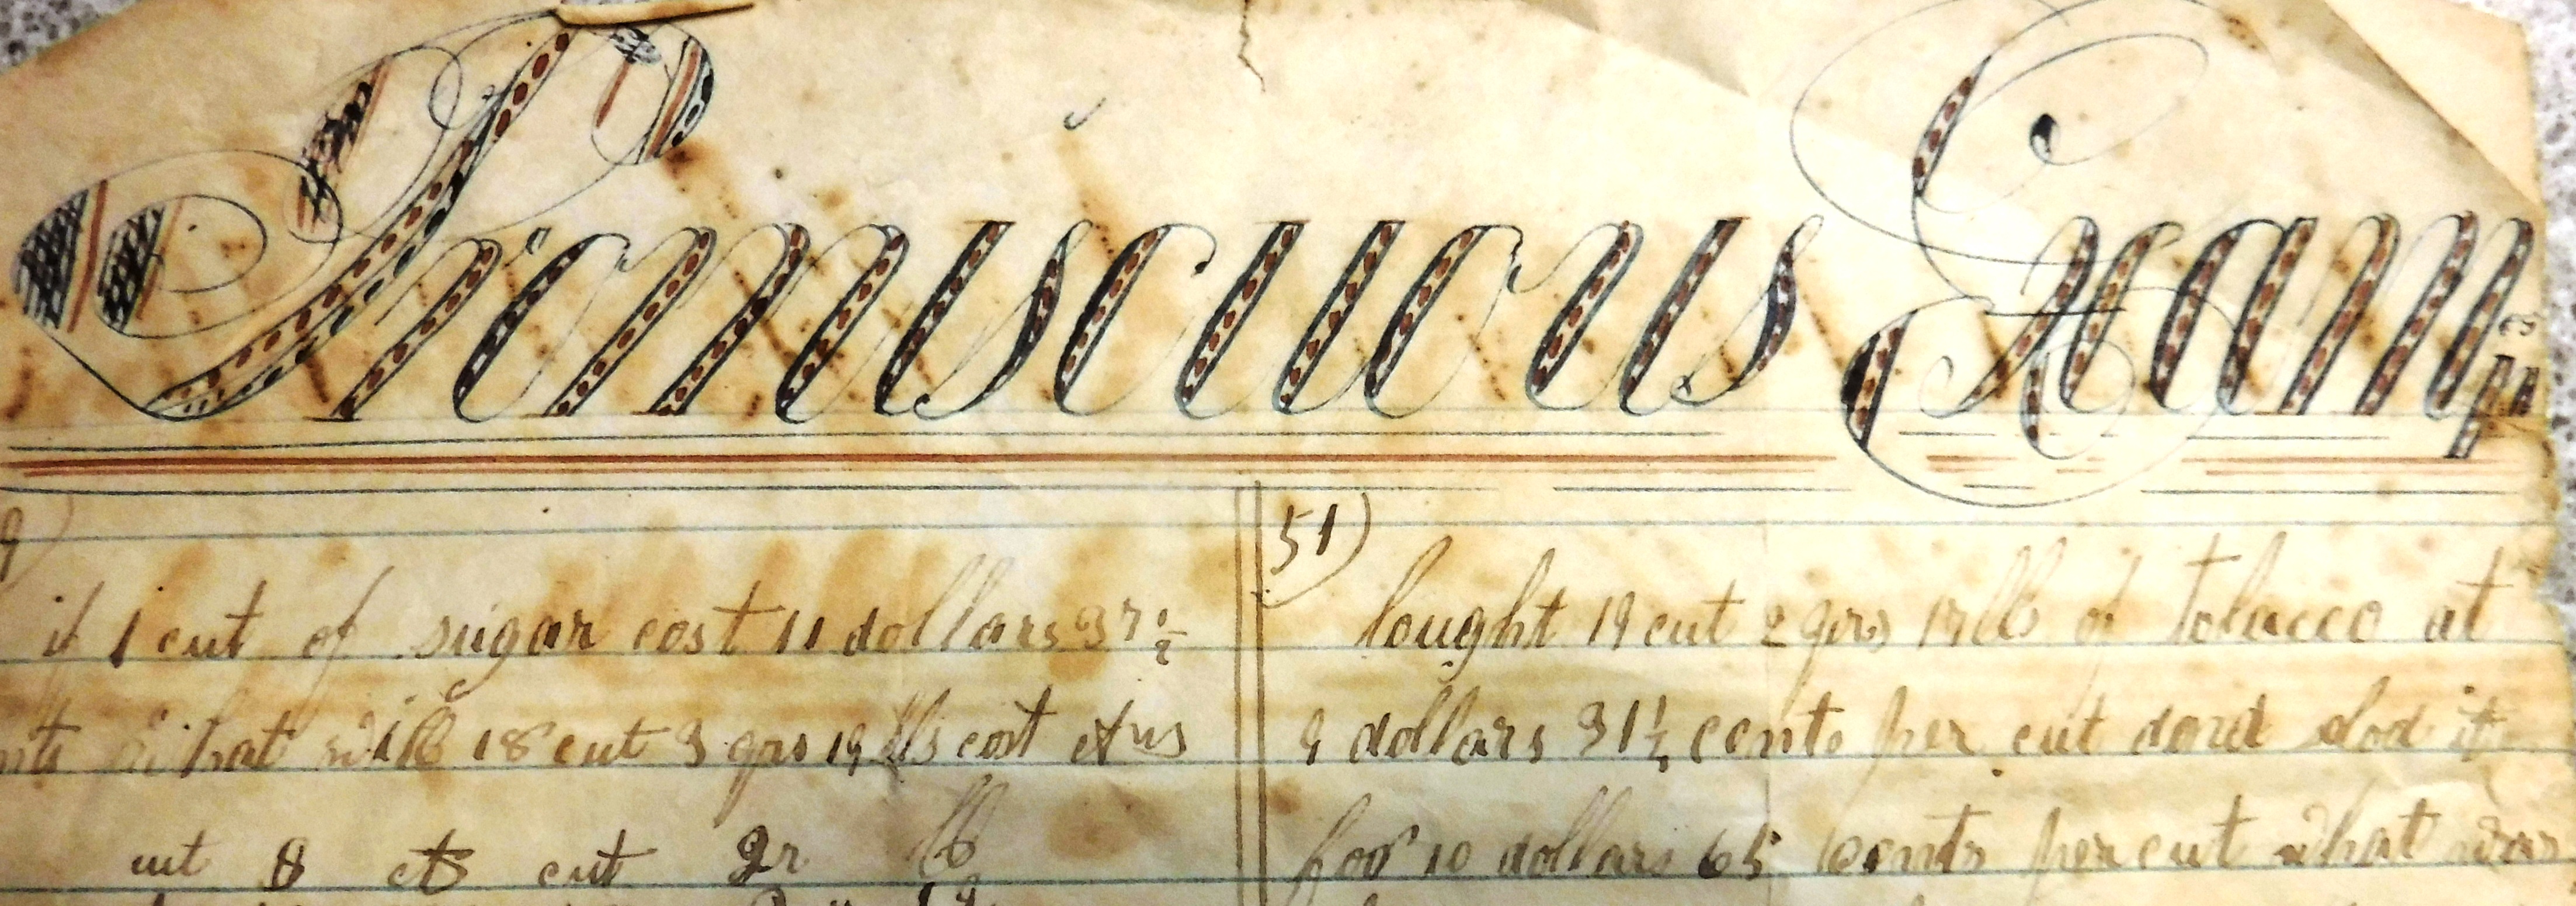 Promiscuous Examp
if 1 cwt of sugar cost 11 dollars 37 1/2
nts what will 18 cwt 3 qrs 19 lbs cost Ans
cwt $ cts cwt qr lb
51)
bought 19 cwt 2 qrs 17 lb of tobacco at
9 dollars 31 1/4 cents per cwt and sold it
for 10 dollars 65 cents per cwt what was